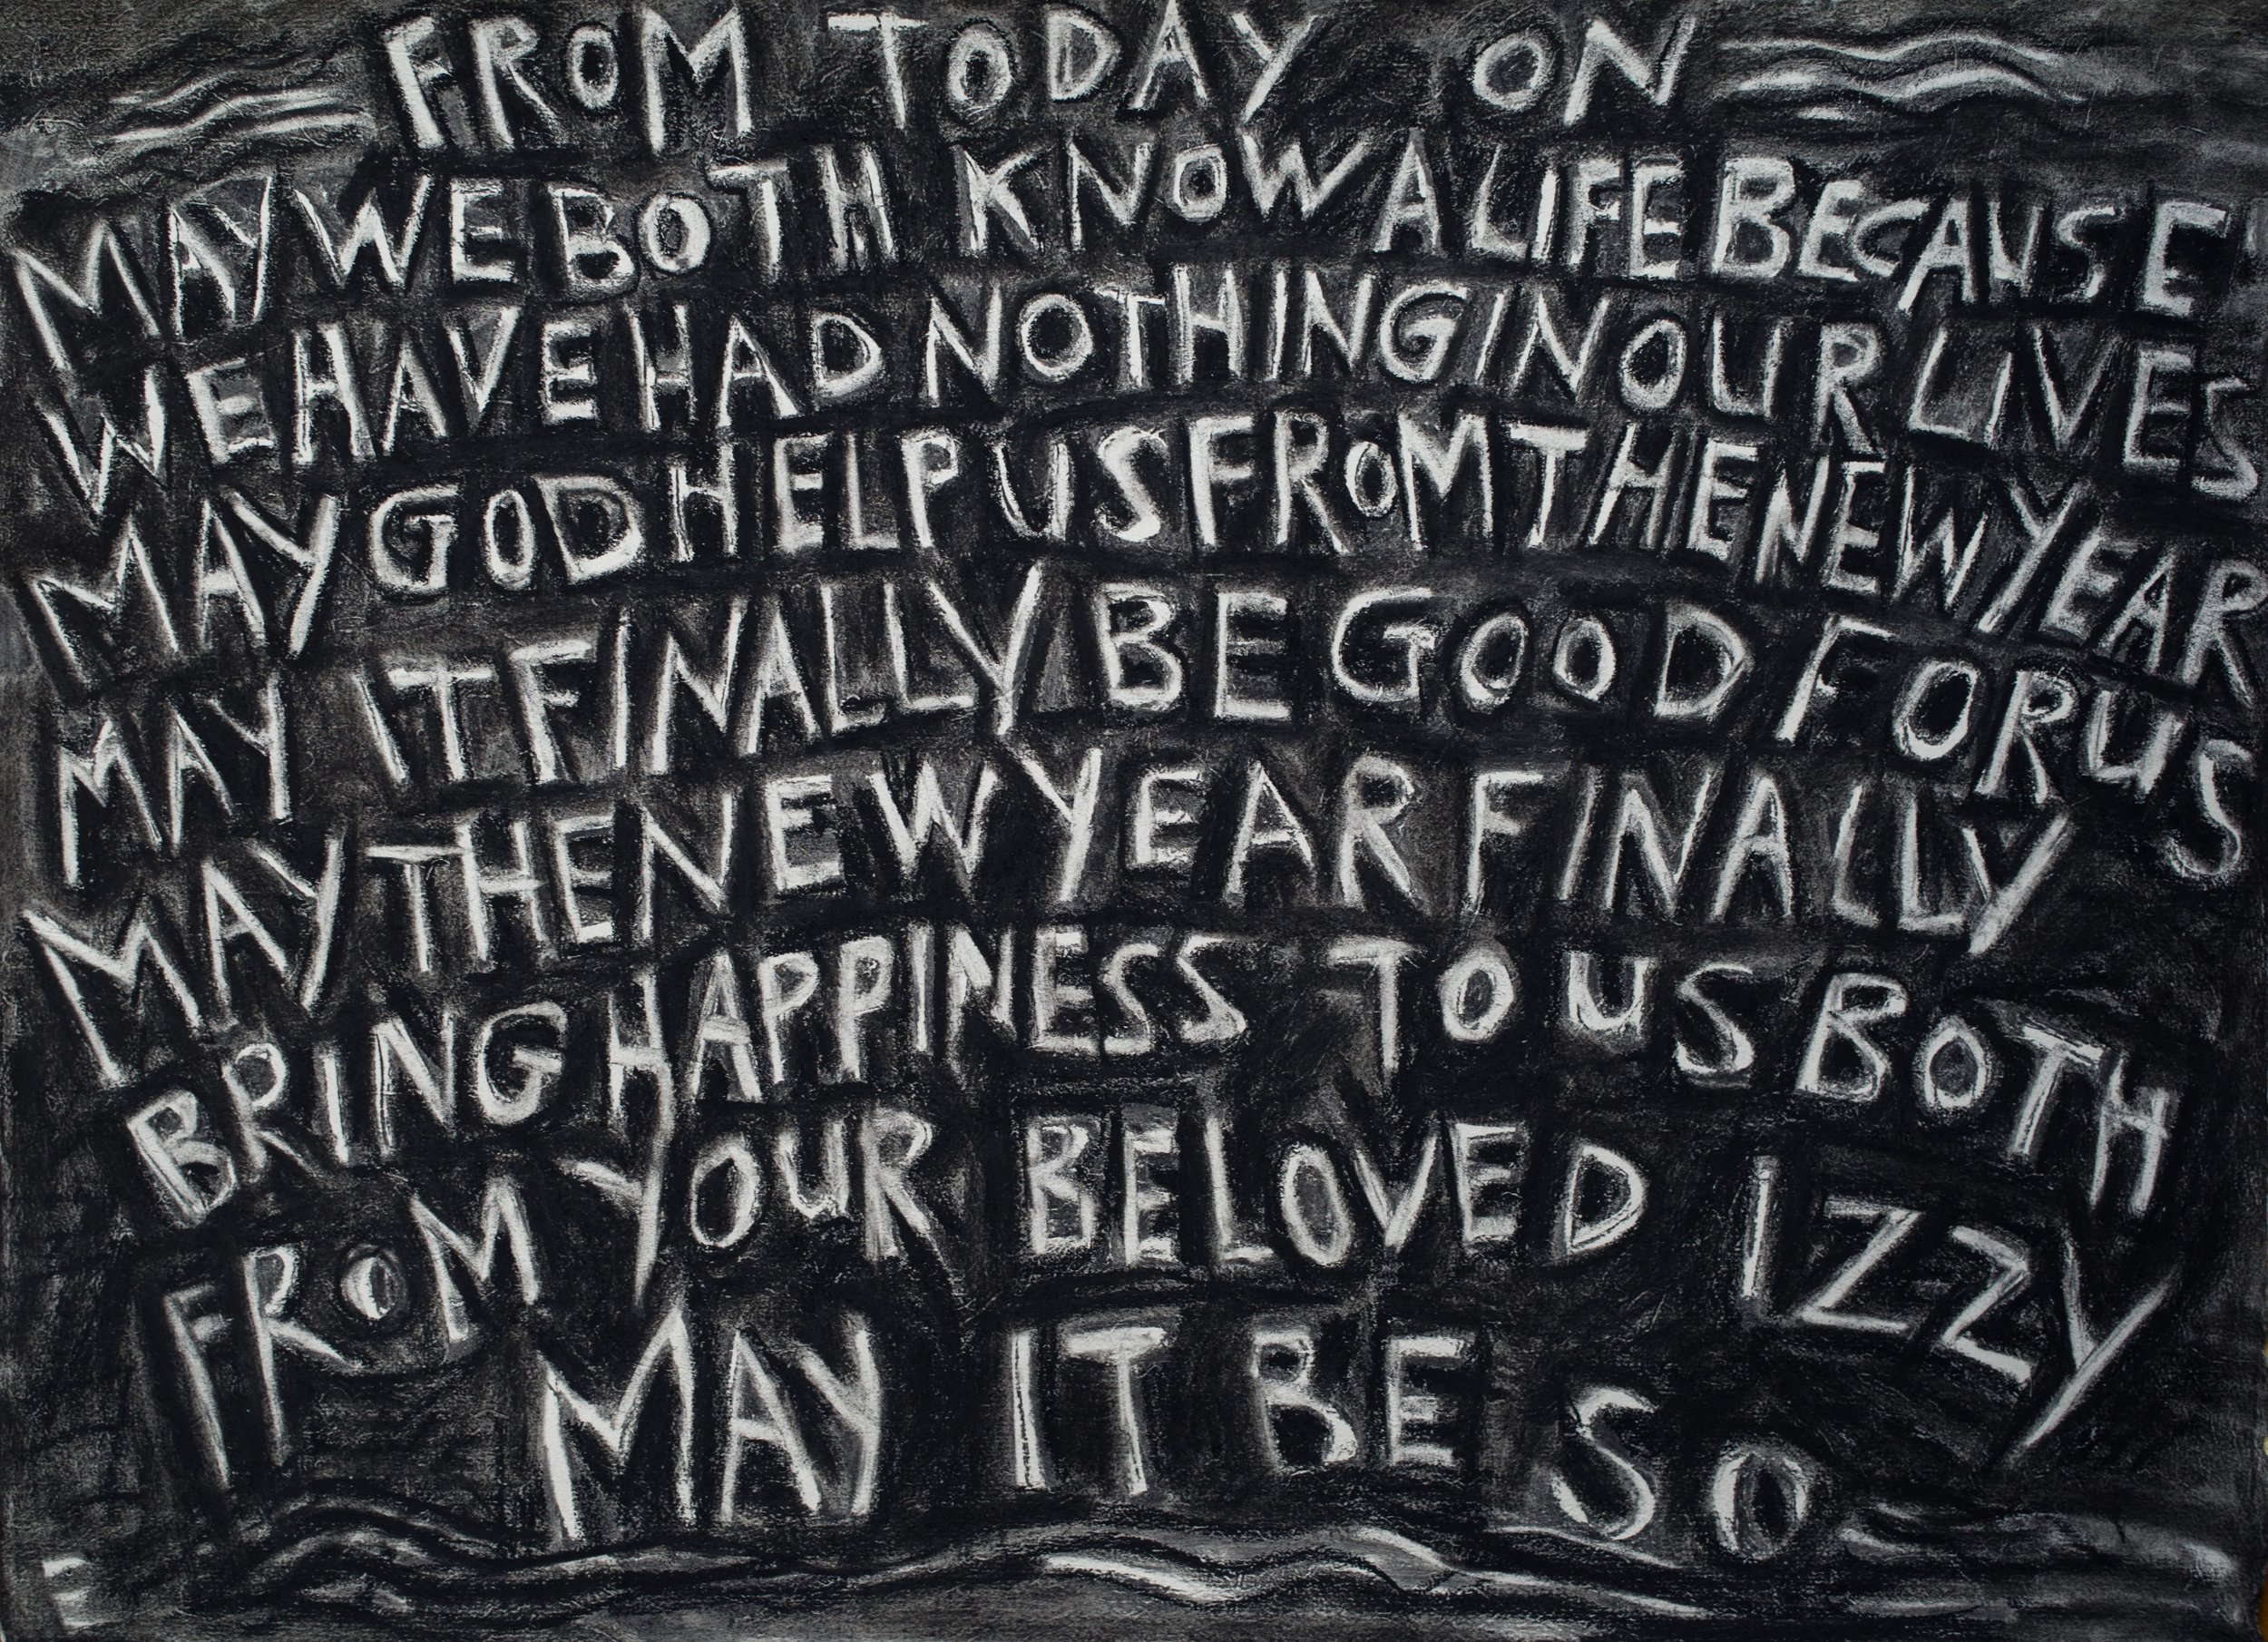 FROM TODAY ON
MAY WE BOTH KNOW A LIFE BECAUSE
WE HAVE HAD NOTHING IN OUR LIVES
MAY GOD HELP US FROM THE NEW YEAR
MAY IT FINALLY BE GOOD FOR US
MAY THE NEW YEAR FINALLY
BRING HAPPINESS TO US BOTH
FROM YOUR BELOVED IZZY
MAY IT BE SO
E